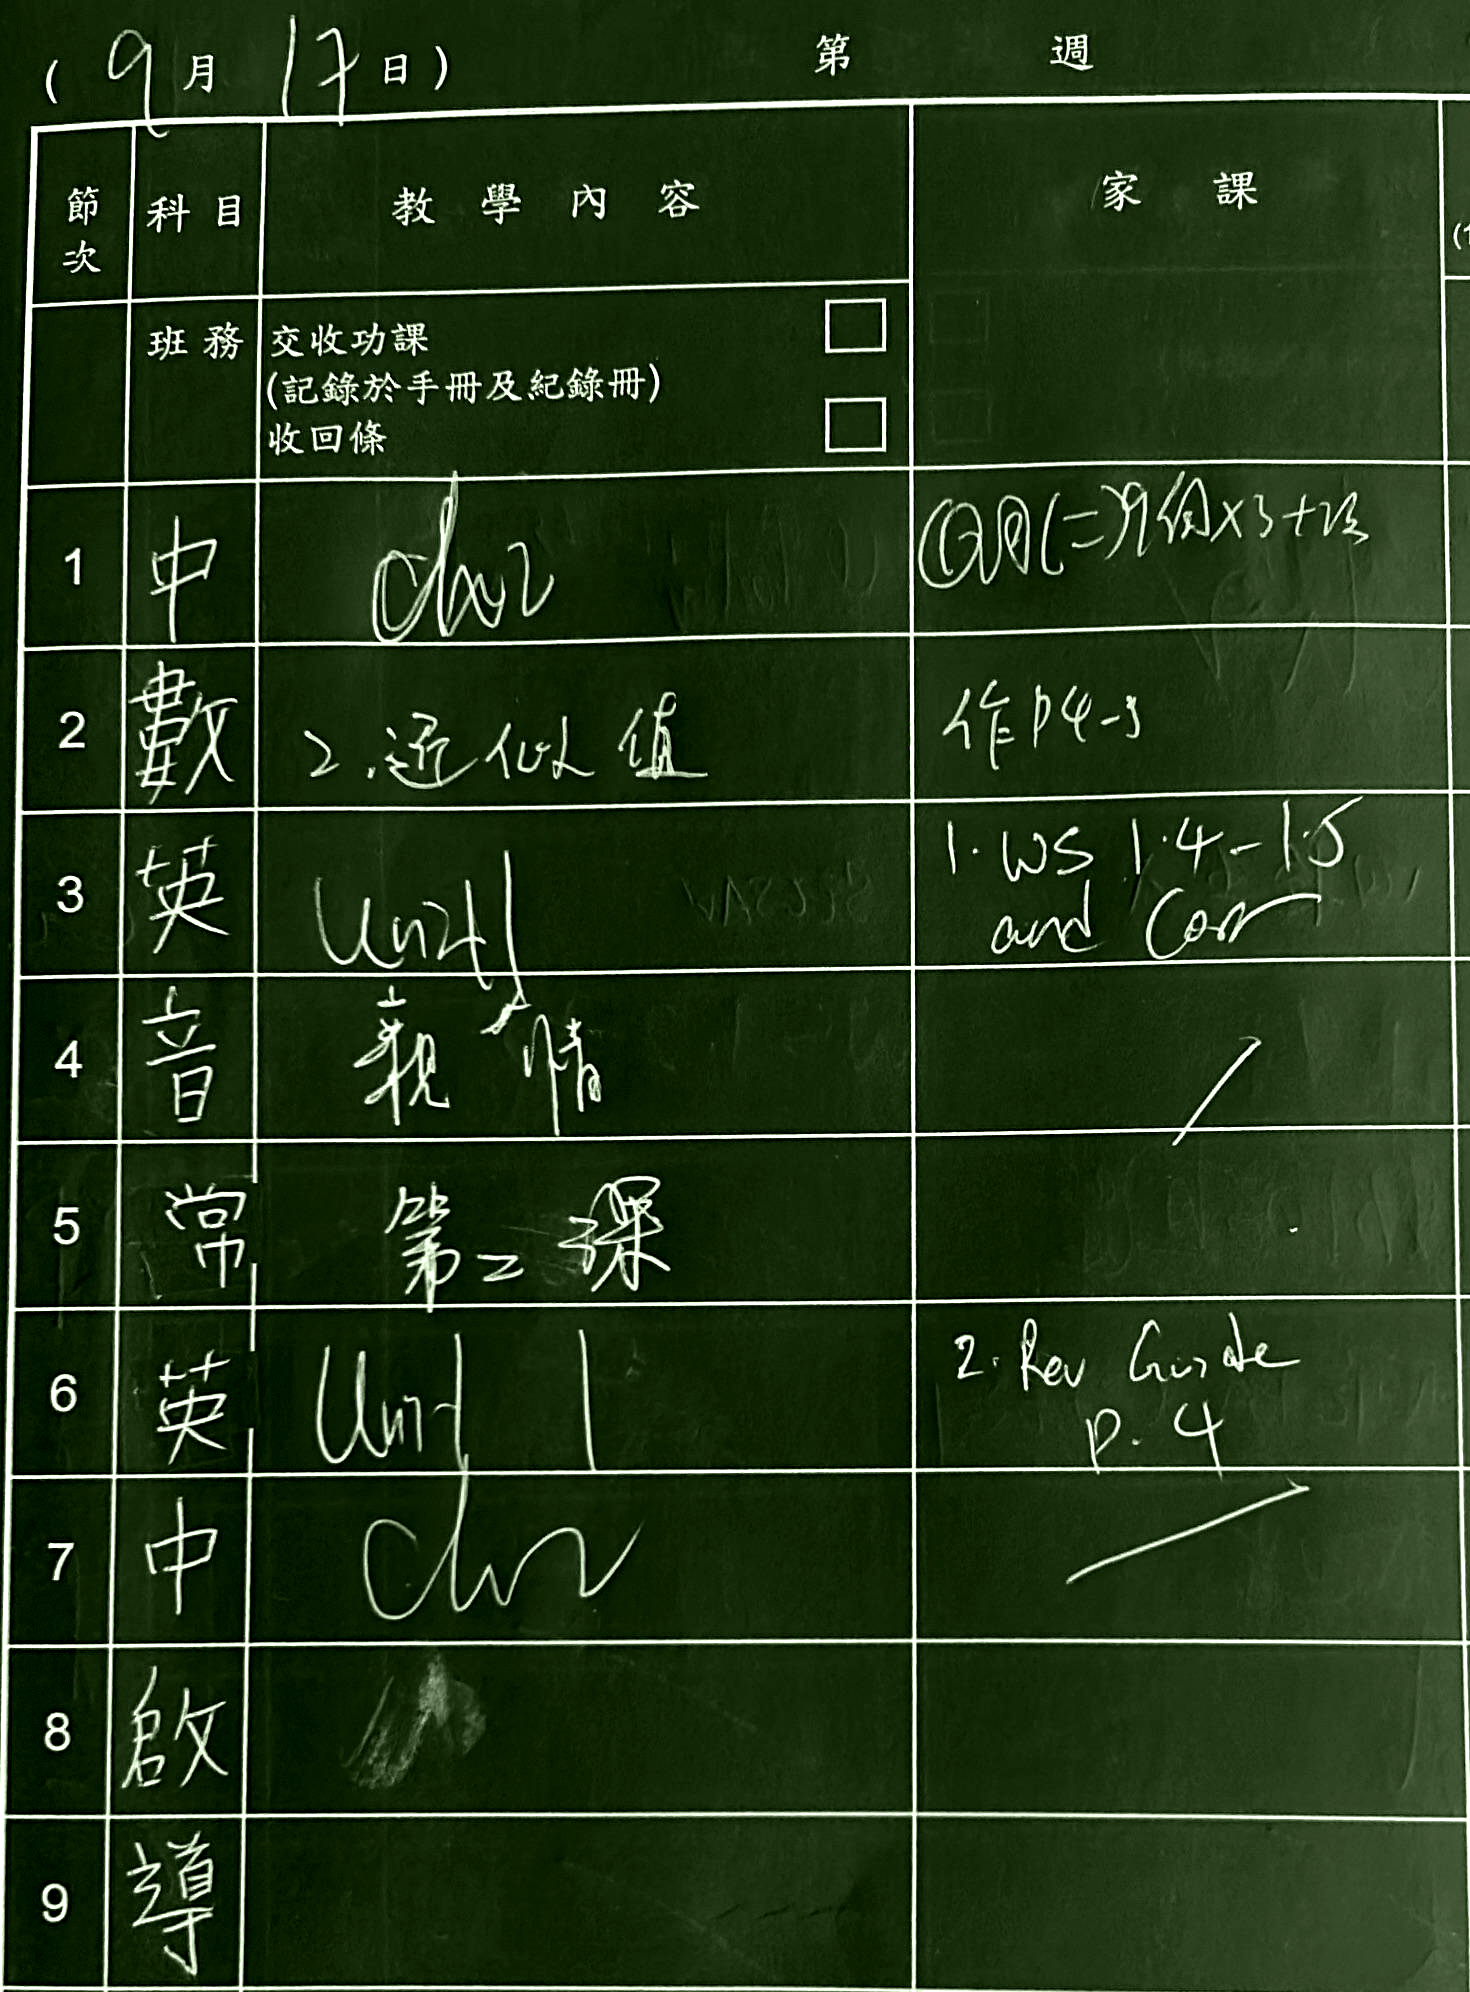 ( 9 月 17 日 )
第 週
節次 科目 教學內容 家課
班務 交收功課
(記錄於手冊及紀錄冊)
收回條
1 中 ch2
2 數 2.近似值 作P4-5
3 英 Unit 1 1. WS 1.4-1.5
and Corr
4 音 親情
5 常 第二課
6 英 Unit 1 2. Rev Guide
p. 4
7 中 ch2
8 啟
9 導